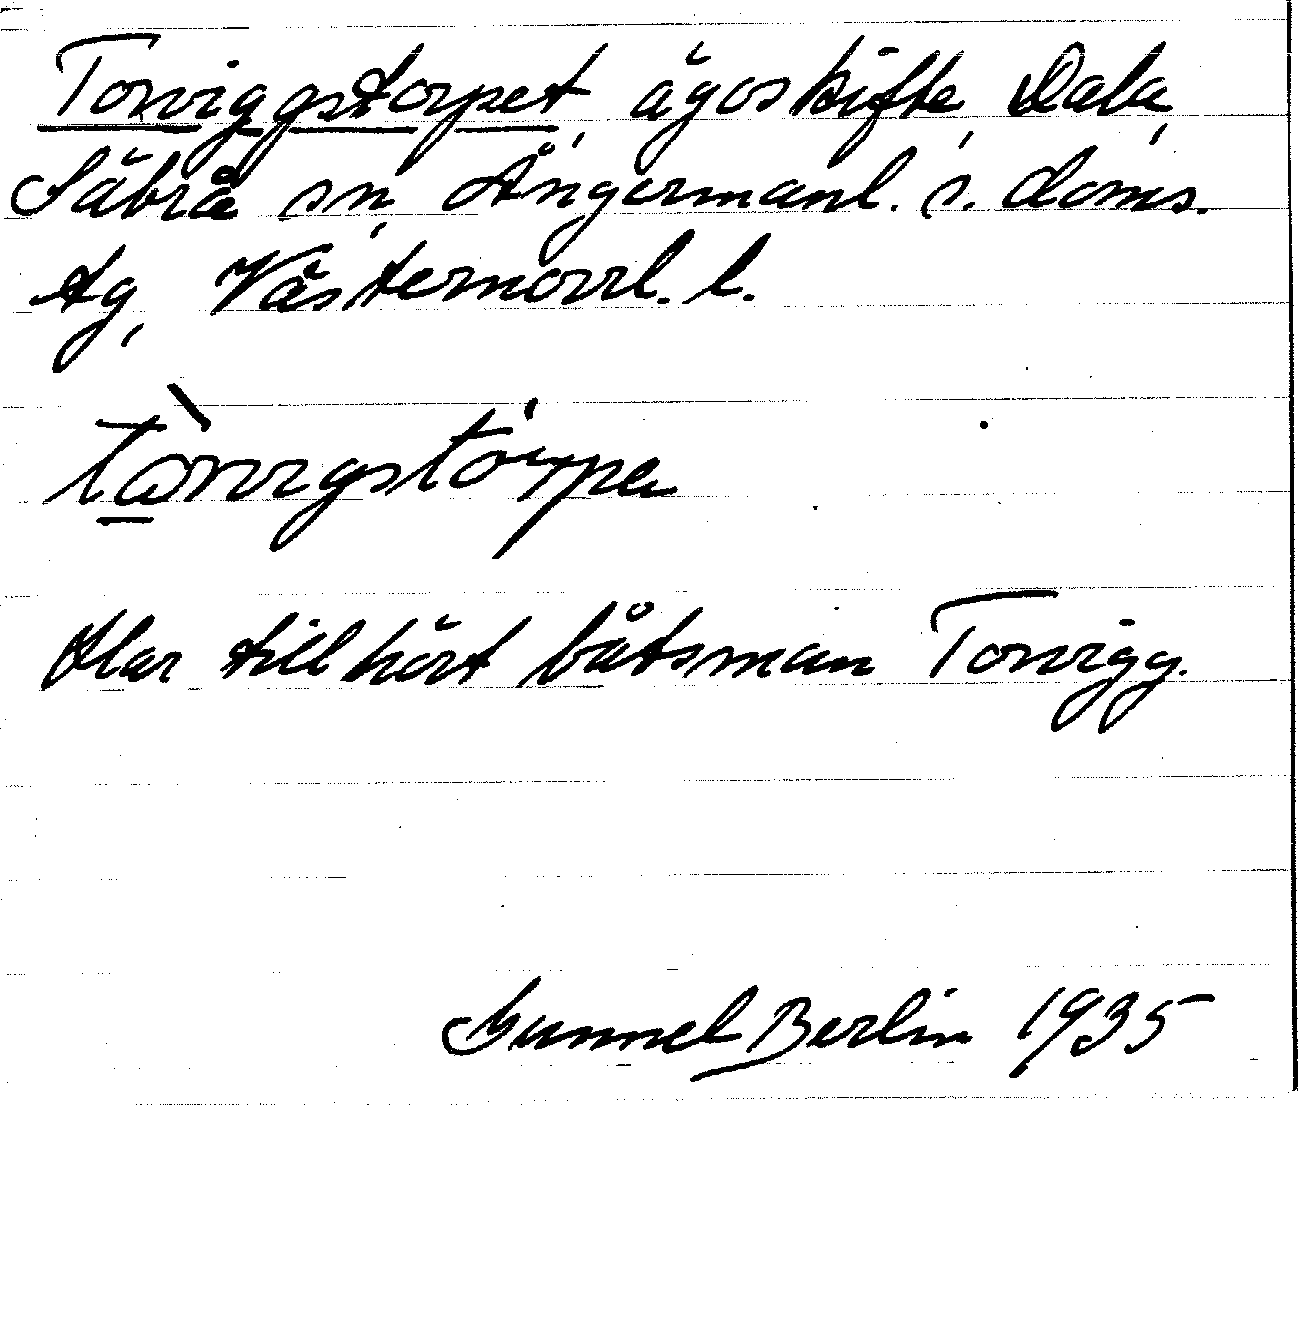 Torviggstorpet, ägoskifte, Dala,
Säbrå sn, Ångermanl. s. doms.
tg, Västernorrl. l.
Har tillhört båtsman Torvigg.
Gunnel Berlin 1935